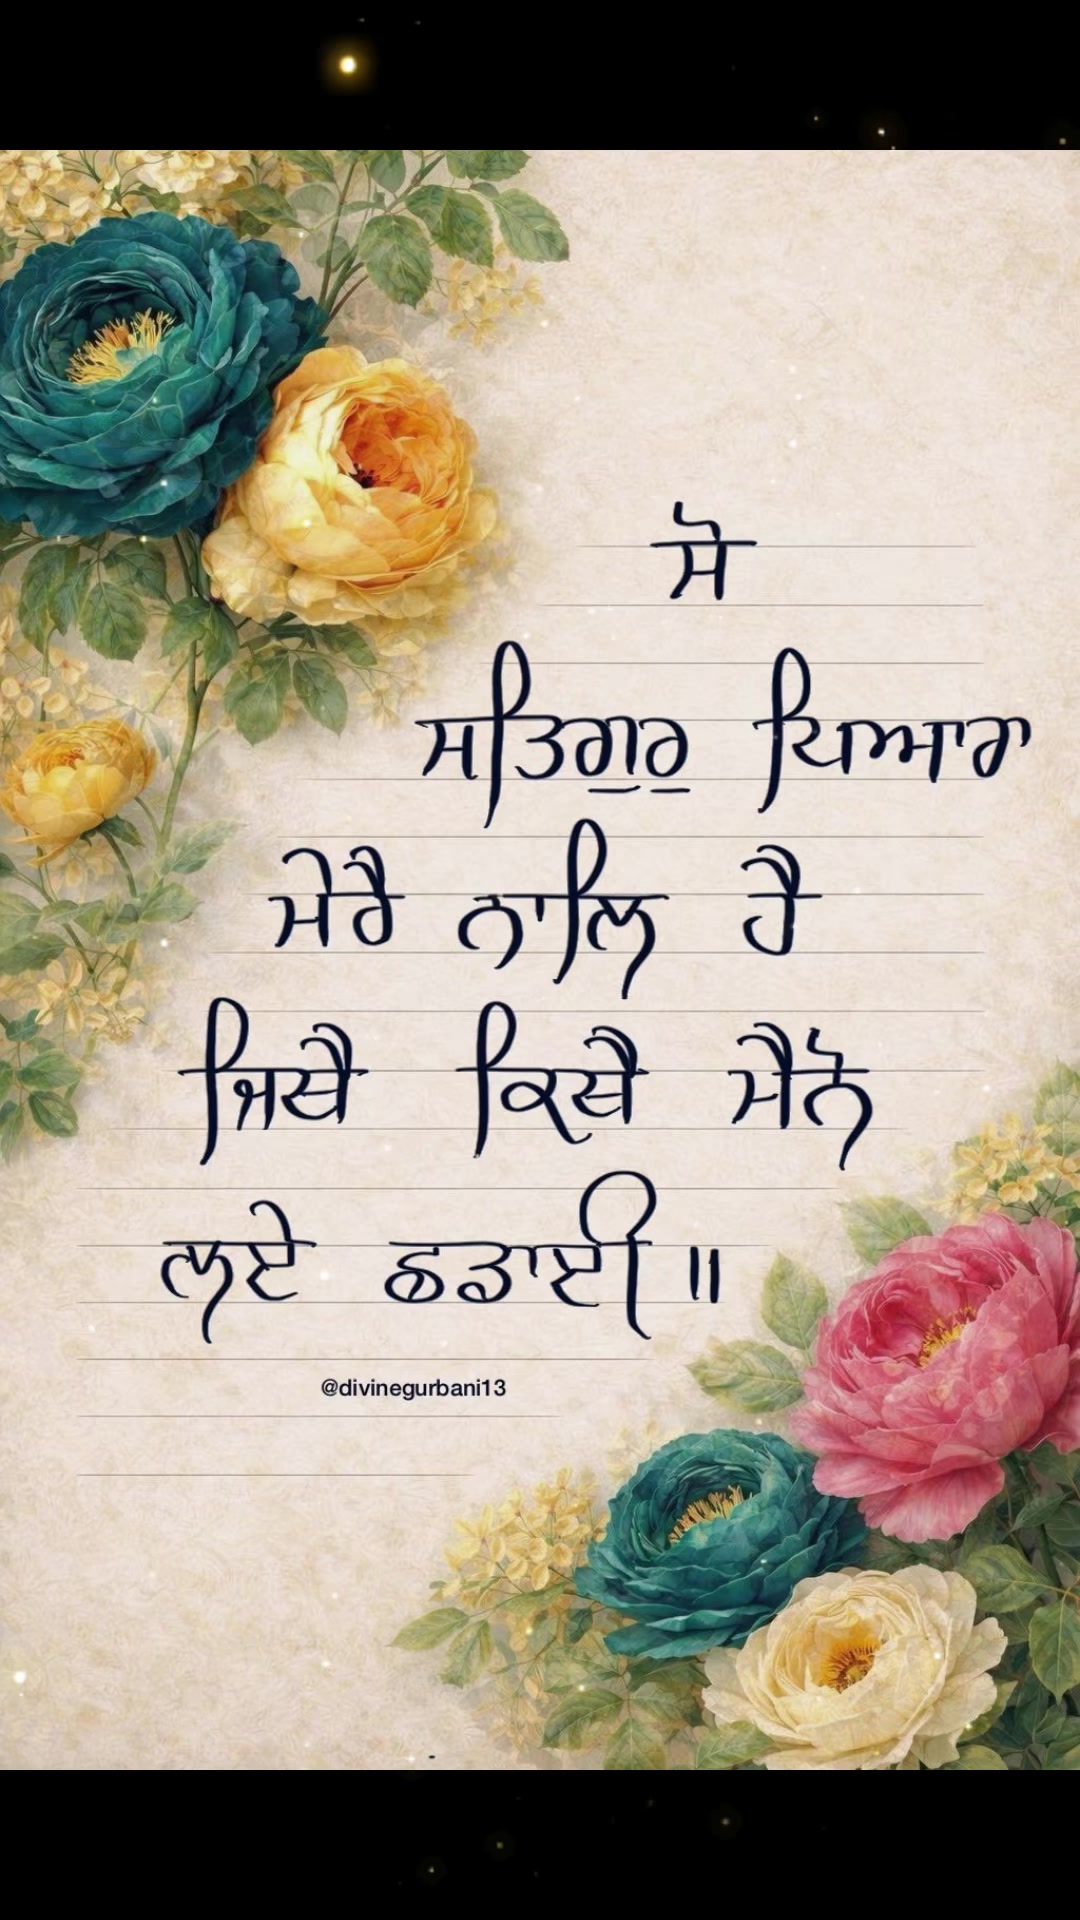 ਸੋ
ਸਤਿਗੁਰੁ ਪਿਆਰਾ
ਮੇਰੈ ਨਾਲਿ ਹੈ
ਜਿਥੈ ਕਿਥੈ ਮੈਨੋ
ਲਏ ਛਡਾਈ ॥
@divinegurbani13